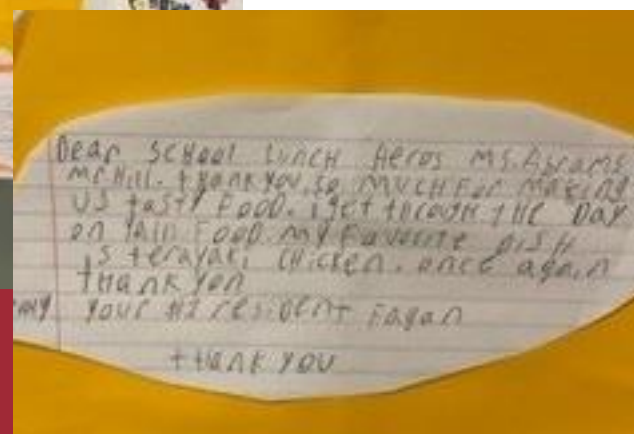 Dear School Lunch Heros Ms. Abrams
mr Hill. thank you so much For making
us tasty Food. i get through the Day
on Food. my Favorite Dish
is terayaki chicken. once again
thank you
your #1 resident Fagan
thank you